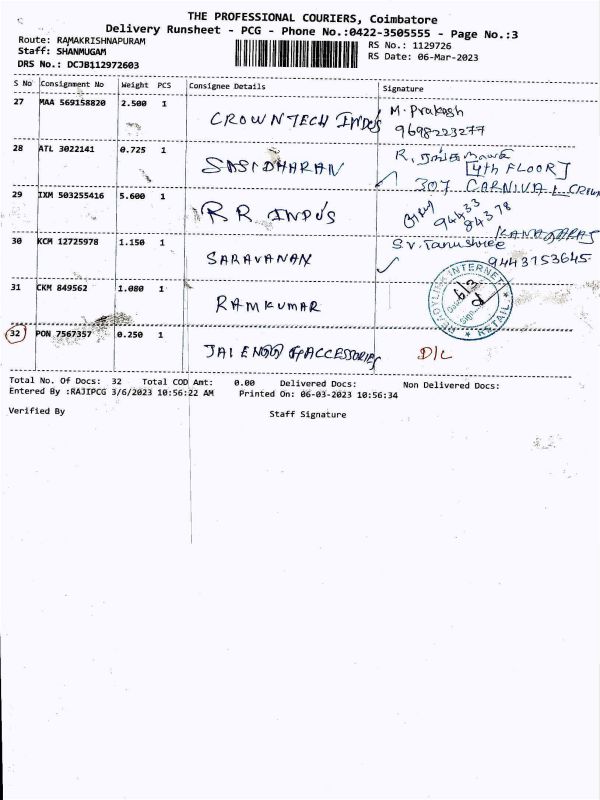 THE PROFESSIONAL COURIERS, Coimbatore
Delivery Runsheet - PCG - Phone No.:0422-3505555 - Page No.:3
Route: RAMAKRISHNAPURAM
RS No.: 1129726
Staff: SHANMUGAM
RS Date: 06-Mar-2023
DRS No.: DCJB112972603
S No Consignment No Weight PCS Consignee Details Signature
27 MAA 569158820 2.500 1 CROWNTECH INDUS M. Prakash
9698223277
28 ATL 3022141 0.725 1 SASIDHARAN R.
[4th FLOOR]
307 CARNIVAL CROWN
29 IXM 503255416 5.600 1 R R INDUS
94433
84378
30 KCM 12725978 1.150 1 SARAVANAN S.V. Tanushree
9443753645
31 CKM 849562 1.080 1 RAMKUMAR
READYLINK INTERNET
RETAIL
Date 6/3
Sign
32 PON 7567357 0.250 1 JAI ENGG & ACCESSORIES D/L
Total No. Of Docs: 32 Total COD Amt: 0.00 Delivered Docs: Non Delivered Docs:
Entered By :RAJIPCG 3/6/2023 10:56:22 AM Printed On: 06-03-2023 10:56:34
Verified By Staff Signature